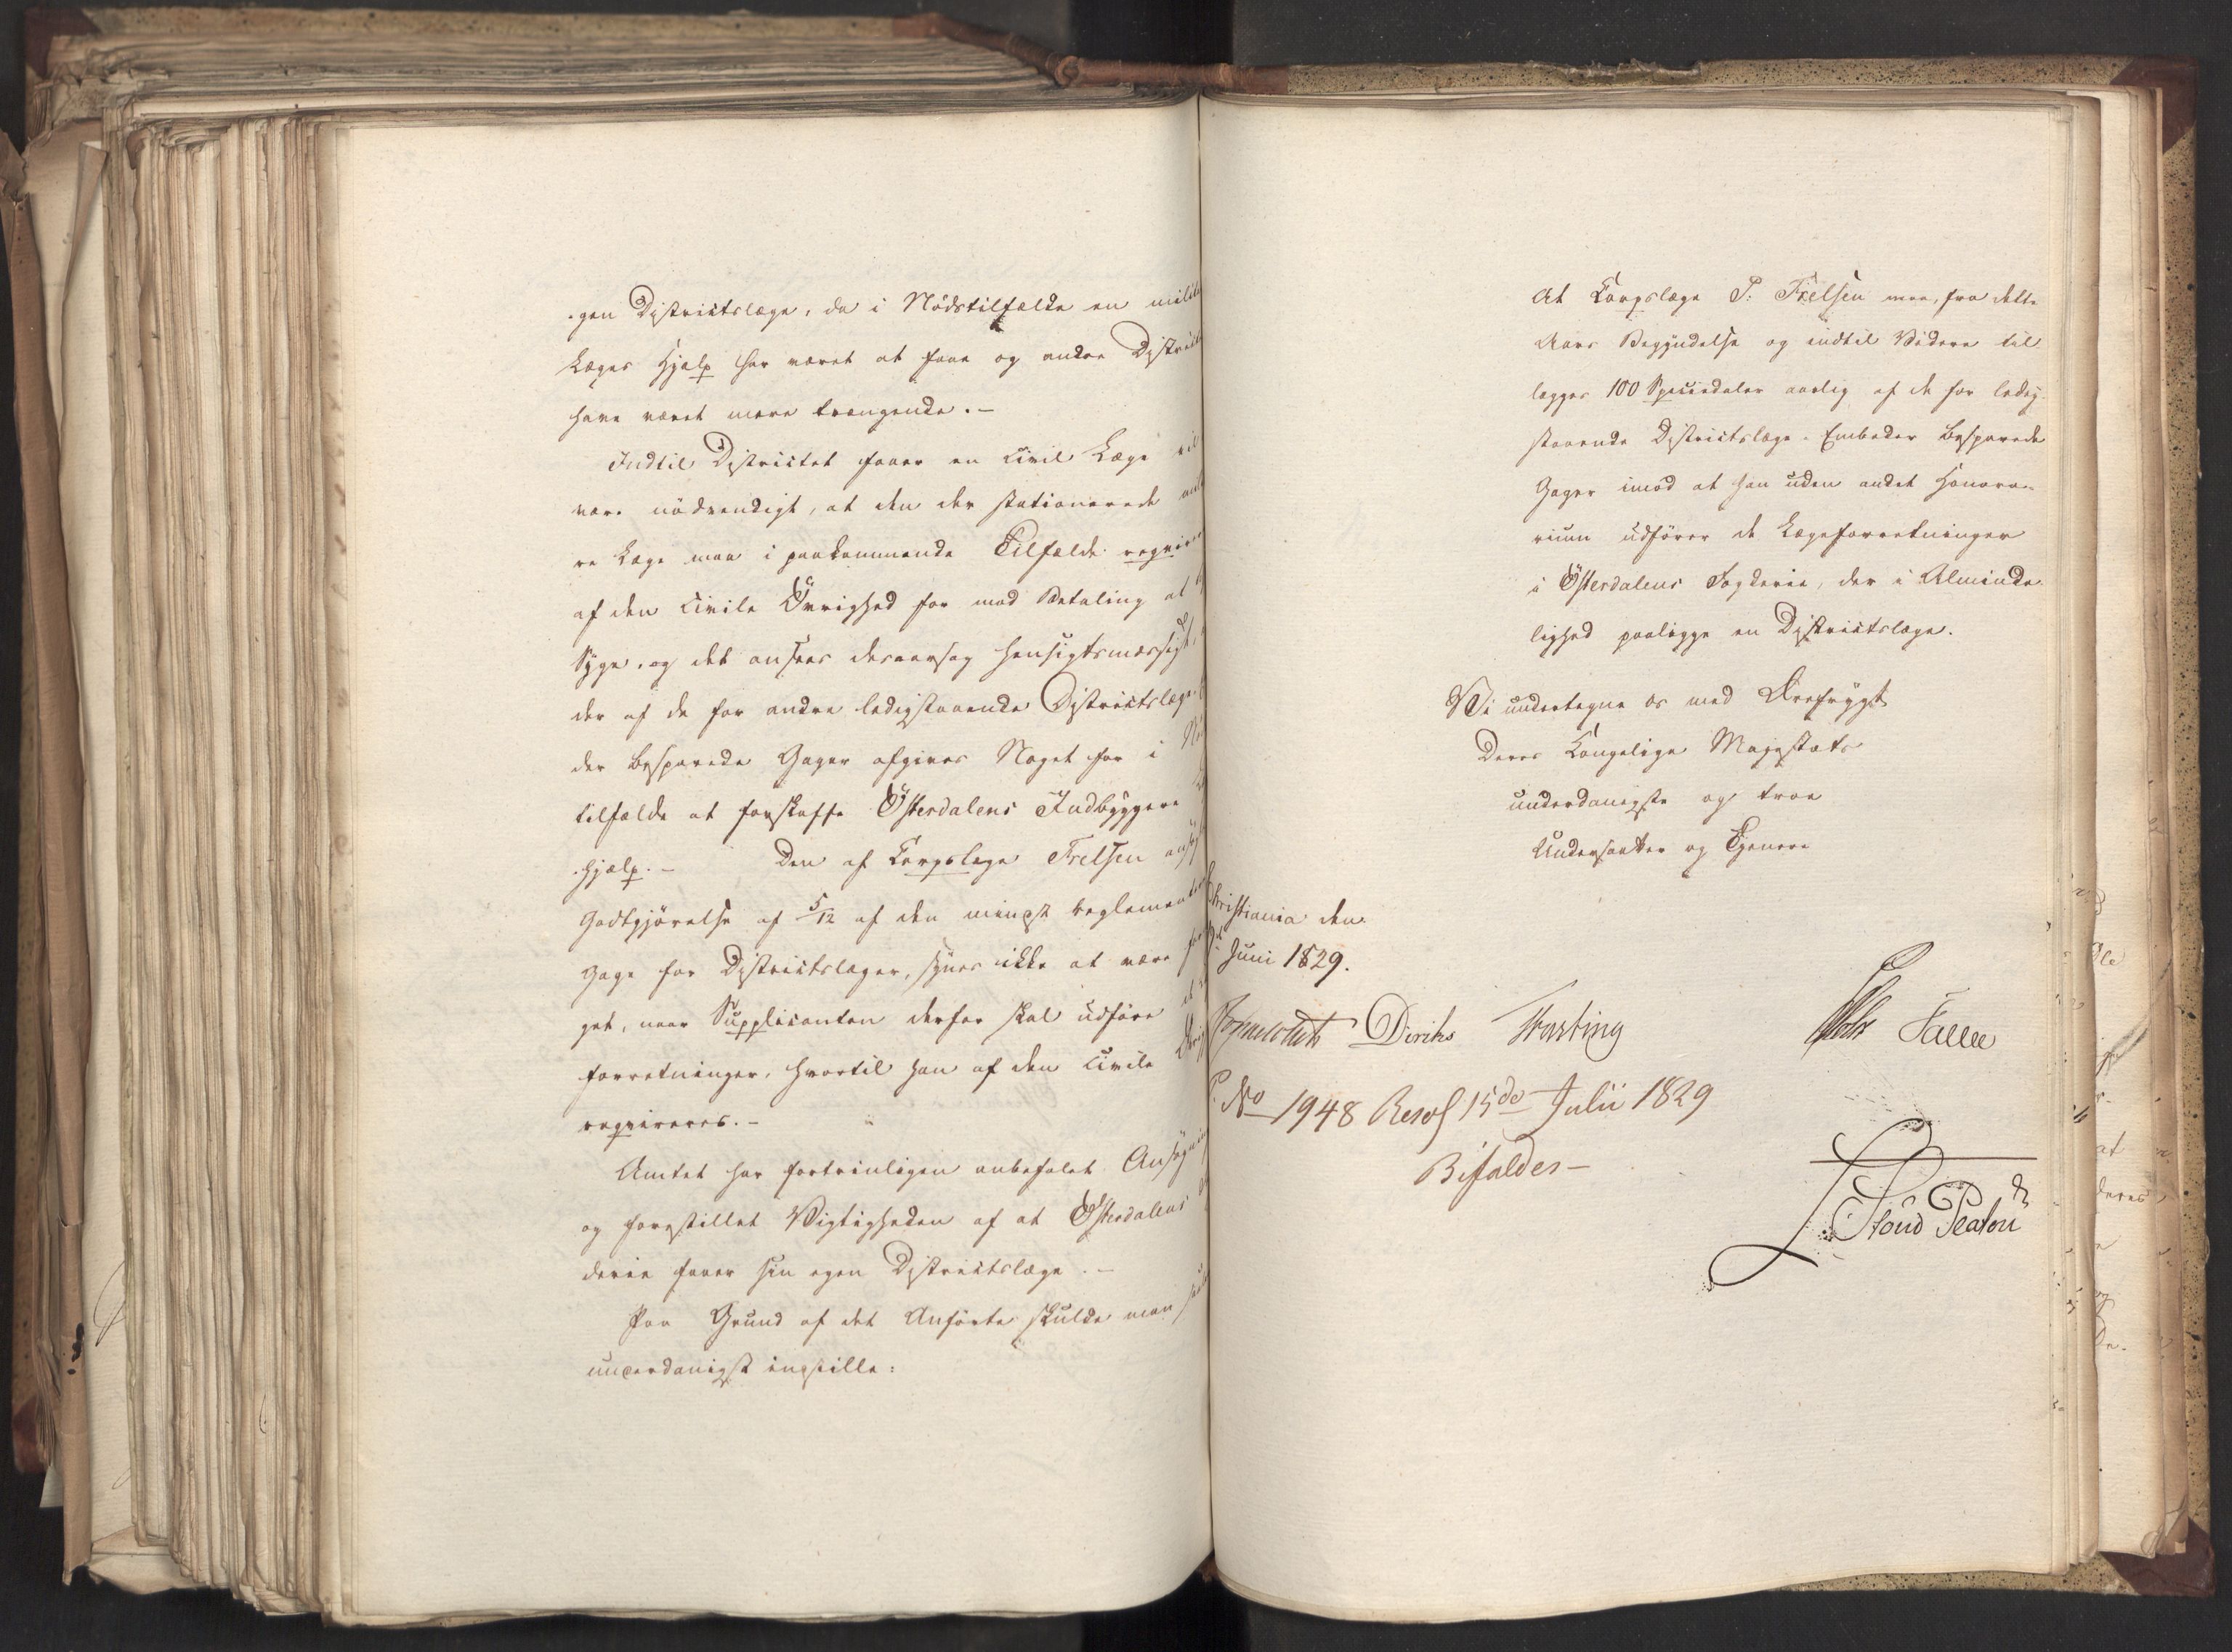 gen Districtslæge, da i Nödstilfælde en milit
Læges Hjælp har været at faae og andre District
have været mere trængende. –
Indtil Districtet faaer en Civil Læge vil
være nödvendigt, at den der stationerede
re Læge maa i paakommende Tilfælde requir
af den Civile Övrighed for mod Betaling at
Syge, og det ansees desaarsag hensigtsmæssigt,
der af de for andre ledigstaaende Districtslæge-
der besparede Gager afgives Noget for i Nöd
tilfælde at forskaffe Österdalens Indbyggere
Hjælp. – Den af Corpslæge Frelsen ansögte
Godtgjörelse af 5/12 af den mindst reglementer
Gage for Districtslæger, synes ikke at være for
get, naar Supplicanten derfor skal udföre
forretninger, hvortil han af den Civile Övrig
requireres. –
Amtet har fortrinligen anbefalet Ansögning
og forestillet Vigtigheden af at Österdalens
derie faaer sin egen Districtslæge. –
Paa Grund af det Anförte skulde man
underdanigst indstille:
At Corpslæge P: Frelsen maa, fra dette
Aars Begyndelse og indtil Videre til-
lægges 100 Speciedaler aarlig af de for ledig-
staaende Districtslæge-Embeder besparede
Gager imod at han uden andet Honora-
rium udförer de Lægeforretninger
i Österdalens Fogderie, der i Alminde-
lighed paaligge en Districtslæge.
Vi undertegne os med Ærefrygt
Deres Kongelige Majestæts
underdanigste og troe
Undersaatter og Tjenere
Christiania den
Juni 1829.
Diriks Krog Fasting
P. No 1948 Resol 15de Julii 1829
Bifaldes –